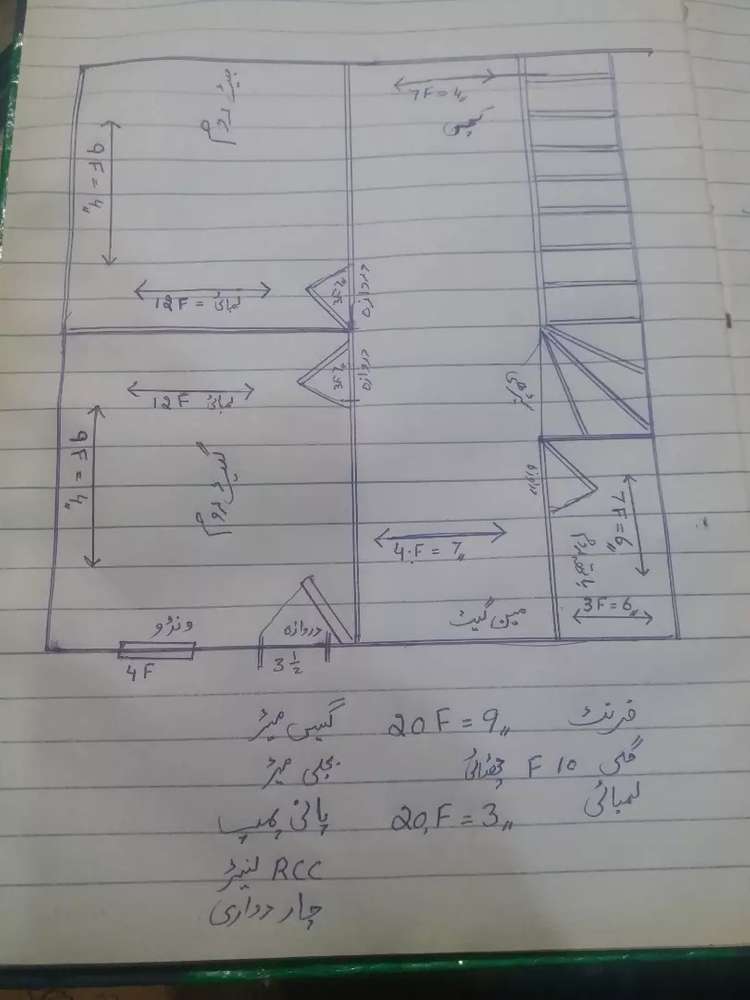 7F = 4"
بیڈ روم
کچن
9F = 4"
12F = لمبائی
دروازہ
دروازہ
12F لمبائی
9F = 4"
گیسٹ روم
سیڑھی
7F = 6"
باتھ روم
4.F = 7"
3F = 6"
مین گیٹ
ونڈو
دروازہ
4F
3 ½
فرنٹ 20F = 9"
گلی 10 F چوڑائی
لمبائی 20F = 3"
گیس میٹر
بجلی میٹر
پانی پمپ
RCC لنیٹر
چار دواری